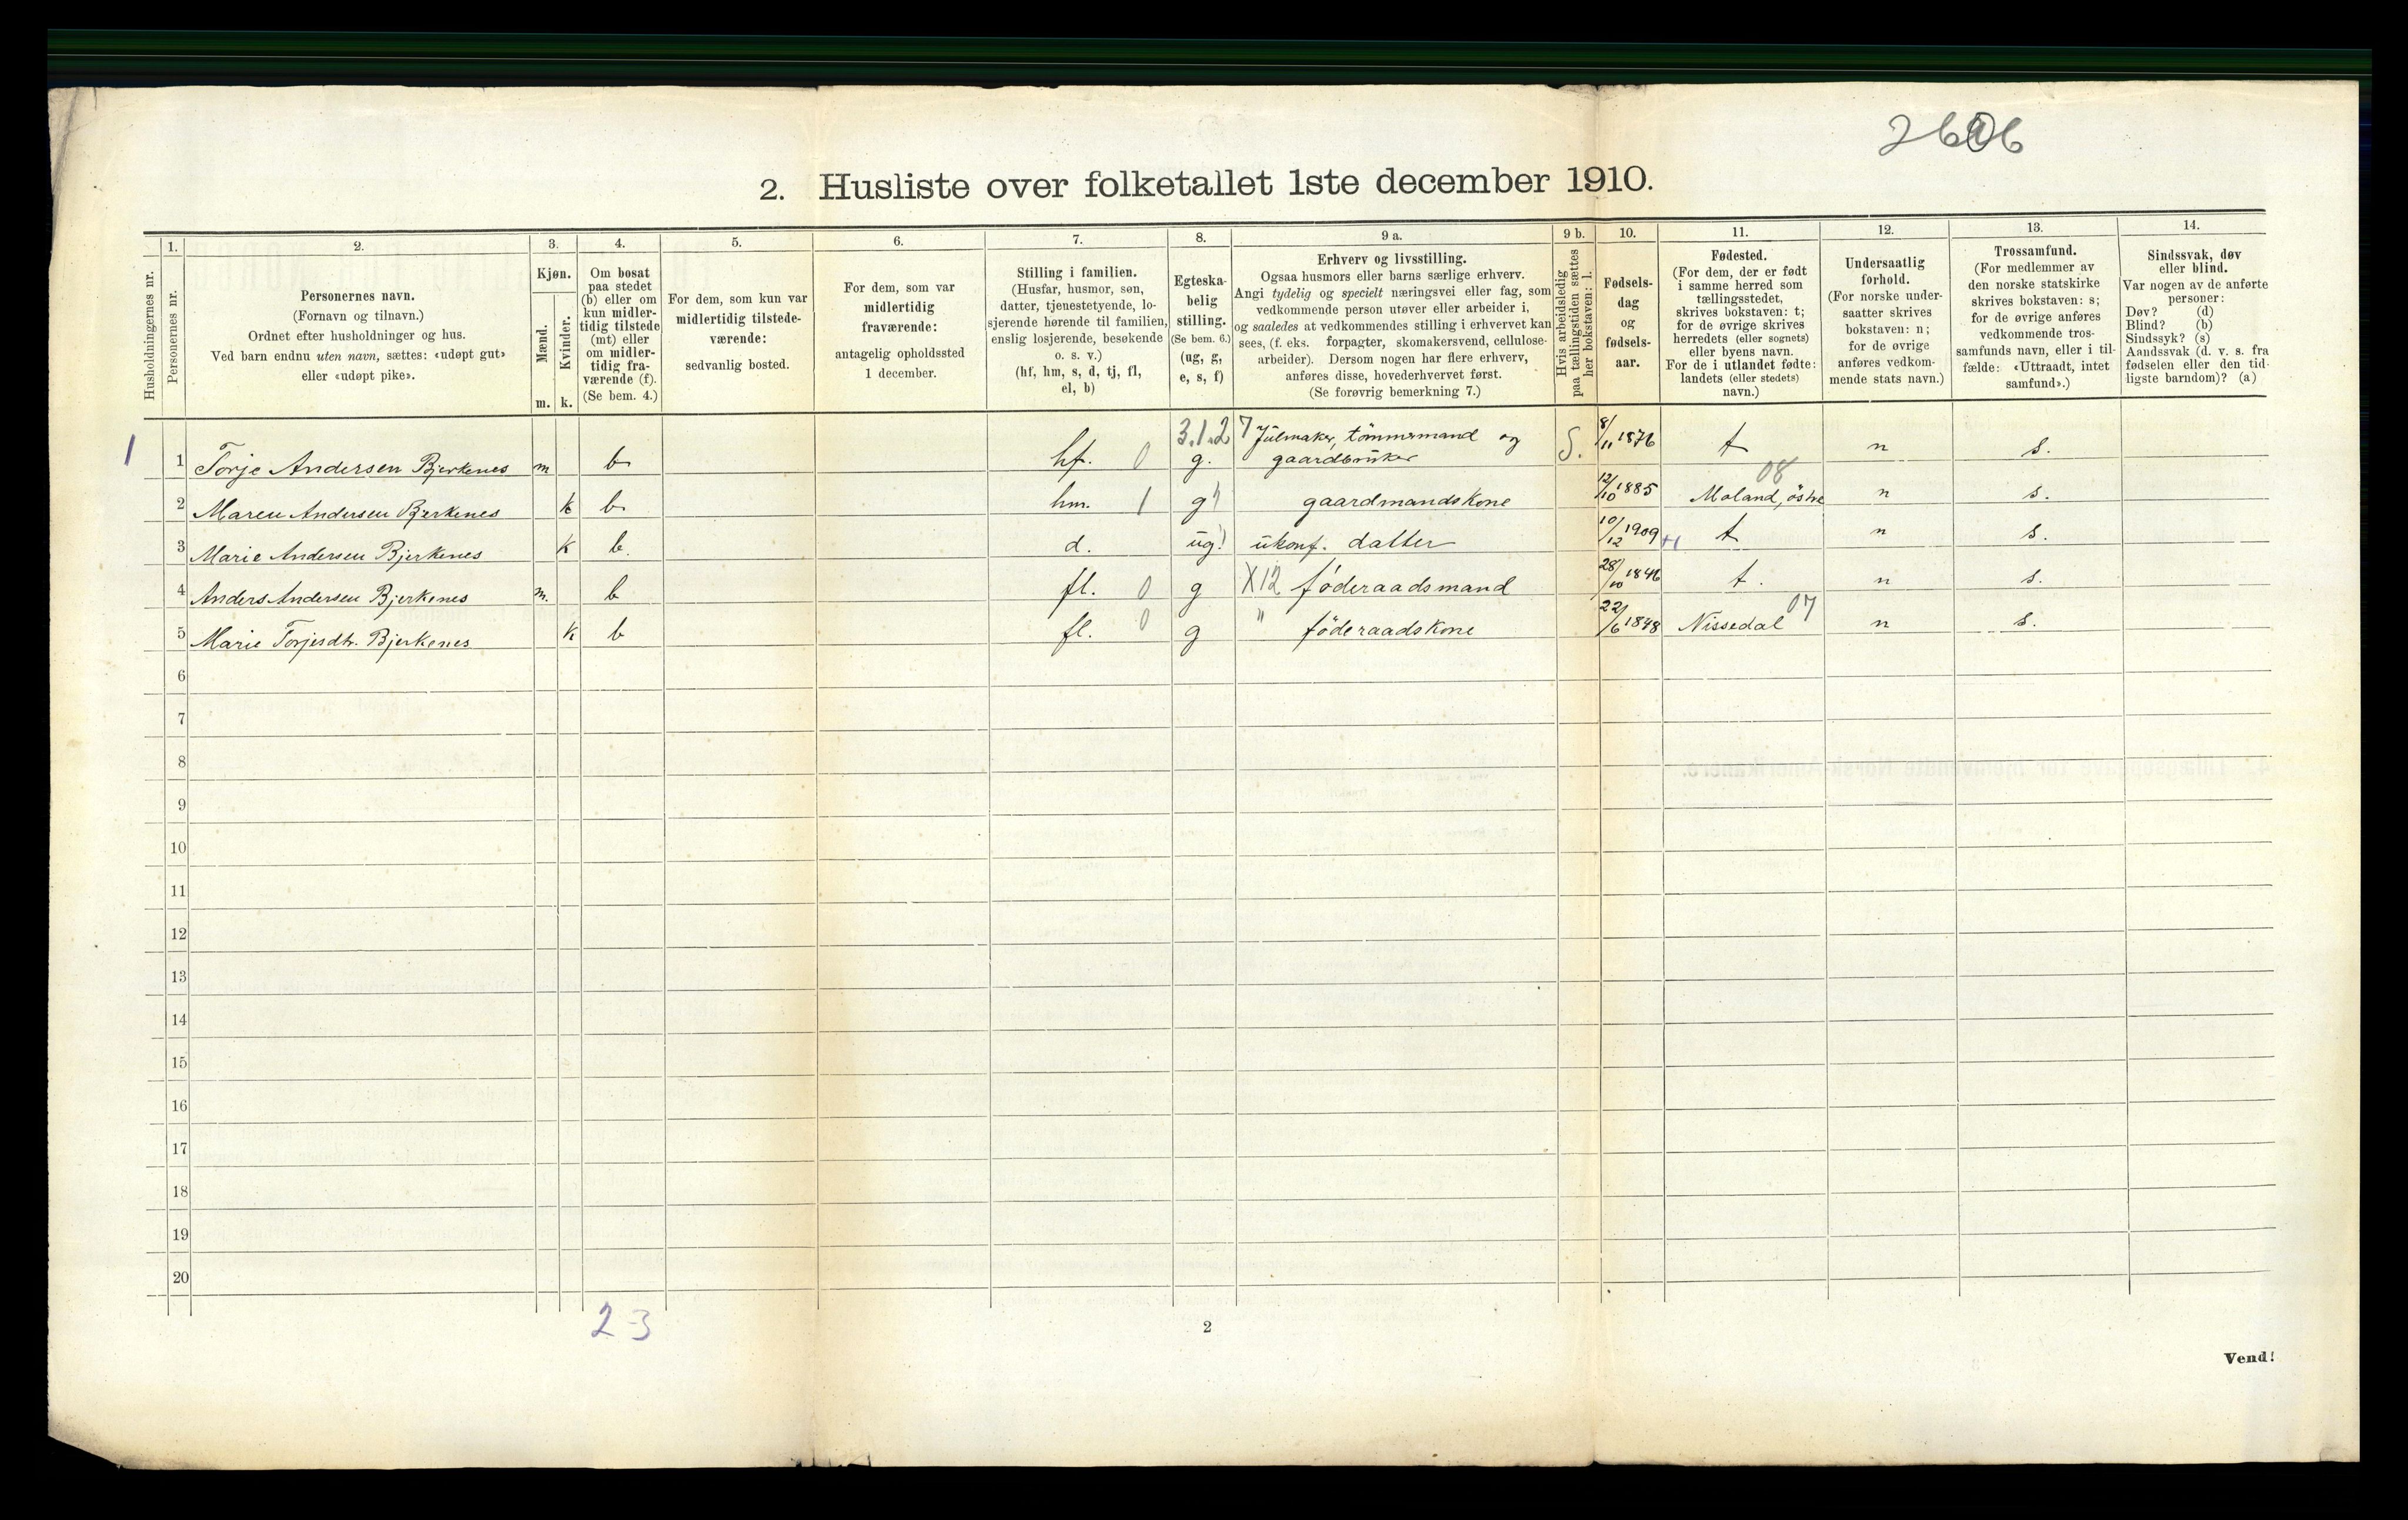 2. Husliste over folketallet 1ste december 1910.
Husholdningernes nr.
1.
Personernes nr.
2.
Personernes navn.
(Fornavn og tilnavn.)
Ordnet efter husholdninger og hus.
Ved barn endnu uten navn, sættes: «udøpt gut»
eller «udøpt pike».
3.
Kjøn.
Mænd.
Kvinder.
m.
k.
4.
Om bosat
paa stedet
(b) eller om
kun midler-
tidig tilstede
(mt) eller
om midler-
tidig fra-
værende (f).
(Se bem. 4.)
5.
For dem, som kun var
midlertidig tilstede-
værende:
sedvanlig bosted.
6.
For dem, som var
midlertidig
fraværende:
antagelig opholdssted
1 december.
7.
Stilling i familien.
(Husfar, husmor, søn,
datter, tjenestetyende, lo-
sjerende hørende til familien,
enslig losjerende, besøkende
o. s. v.)
(hf, hm, s, d, tj, fl,
el, b)
8.
Egteska-
belig
stilling.
(Se bem. 6.)
(ug, g,
e, s, f)
9 a.
Erhverv og livsstilling.
Ogsaa husmors eller barns særlige erhverv.
Angi tydelig og specielt næringsvei eller fag, som
vedkommende person utøver eller arbeider i,
og saaledes at vedkommendes stilling i erhvervet kan
sees, (f. eks. forpagter, skomakersvend, cellulose-
arbeider). Dersom nogen har flere erhverv,
anføres disse, hovederhvervet først.
(Se forøvrig bemerkning 7.)
9 b.
Hvis arbeidsledig
paa tællingstiden sættes
her bokstaven: l.
10.
Fødsels-
dag
og
fødsels-
aar.
11.
Fødested.
(For dem, der er født
i samme herred som
tællingsstedet,
skrives bokstaven: t;
for de øvrige skrives
herredets (eller sognets)
eller byens navn.
For de i utlandet fødte:
landets (eller stedets)
navn.)
12.
Undersaatlig
forhold.
(For norske under-
saatter skrives
bokstaven: n;
for de øvrige
anføres vedkom-
mende stats navn.)
13.
Trossamfund.
(For medlemmer av
den norske statskirke
skrives bokstaven: s;
for de øvrige anføres
vedkommende tros-
samfunds navn, eller i til-
fælde: «Uttraadt, intet
samfund».)
14.
Sindssvak, døv
eller blind.
Var nogen av de anførte
personer:
Døv? (d)
Blind? (b)
Sindssyk? (s)
Aandssvak (d. v. s. fra
fødselen eller den tid-
ligste barndom)? (a)
3.1.2 7 Julmaker, tömmermand og
1 1 Torje Andersen Bjerkenes m b hf. 0 g. gaardbrüker S. 8/11 1876 t n s.
08
2 Maren Andersen Bjerkenes k b hm. 1 g gaardmandskone 12/10 1885 Moland, östre n s.
3 Marie Andersen Bjerkenes k b. d. ug ükonf. datter 10/12 1909 +1 t n s.
4 Anders Andersen Bjerkenes m. b fl. 0 g X12 föderaadsmand 28/10 1846 t. n s.
5 Marie Torjesdtr. Bjerkenes k b fl. 0 g " föderaadskone 22/6 1848 Nissedal 07 n s.
6
7
8
9
10
11
12
13
14
15
16
17
18
19
20
2-3
2
Vend!